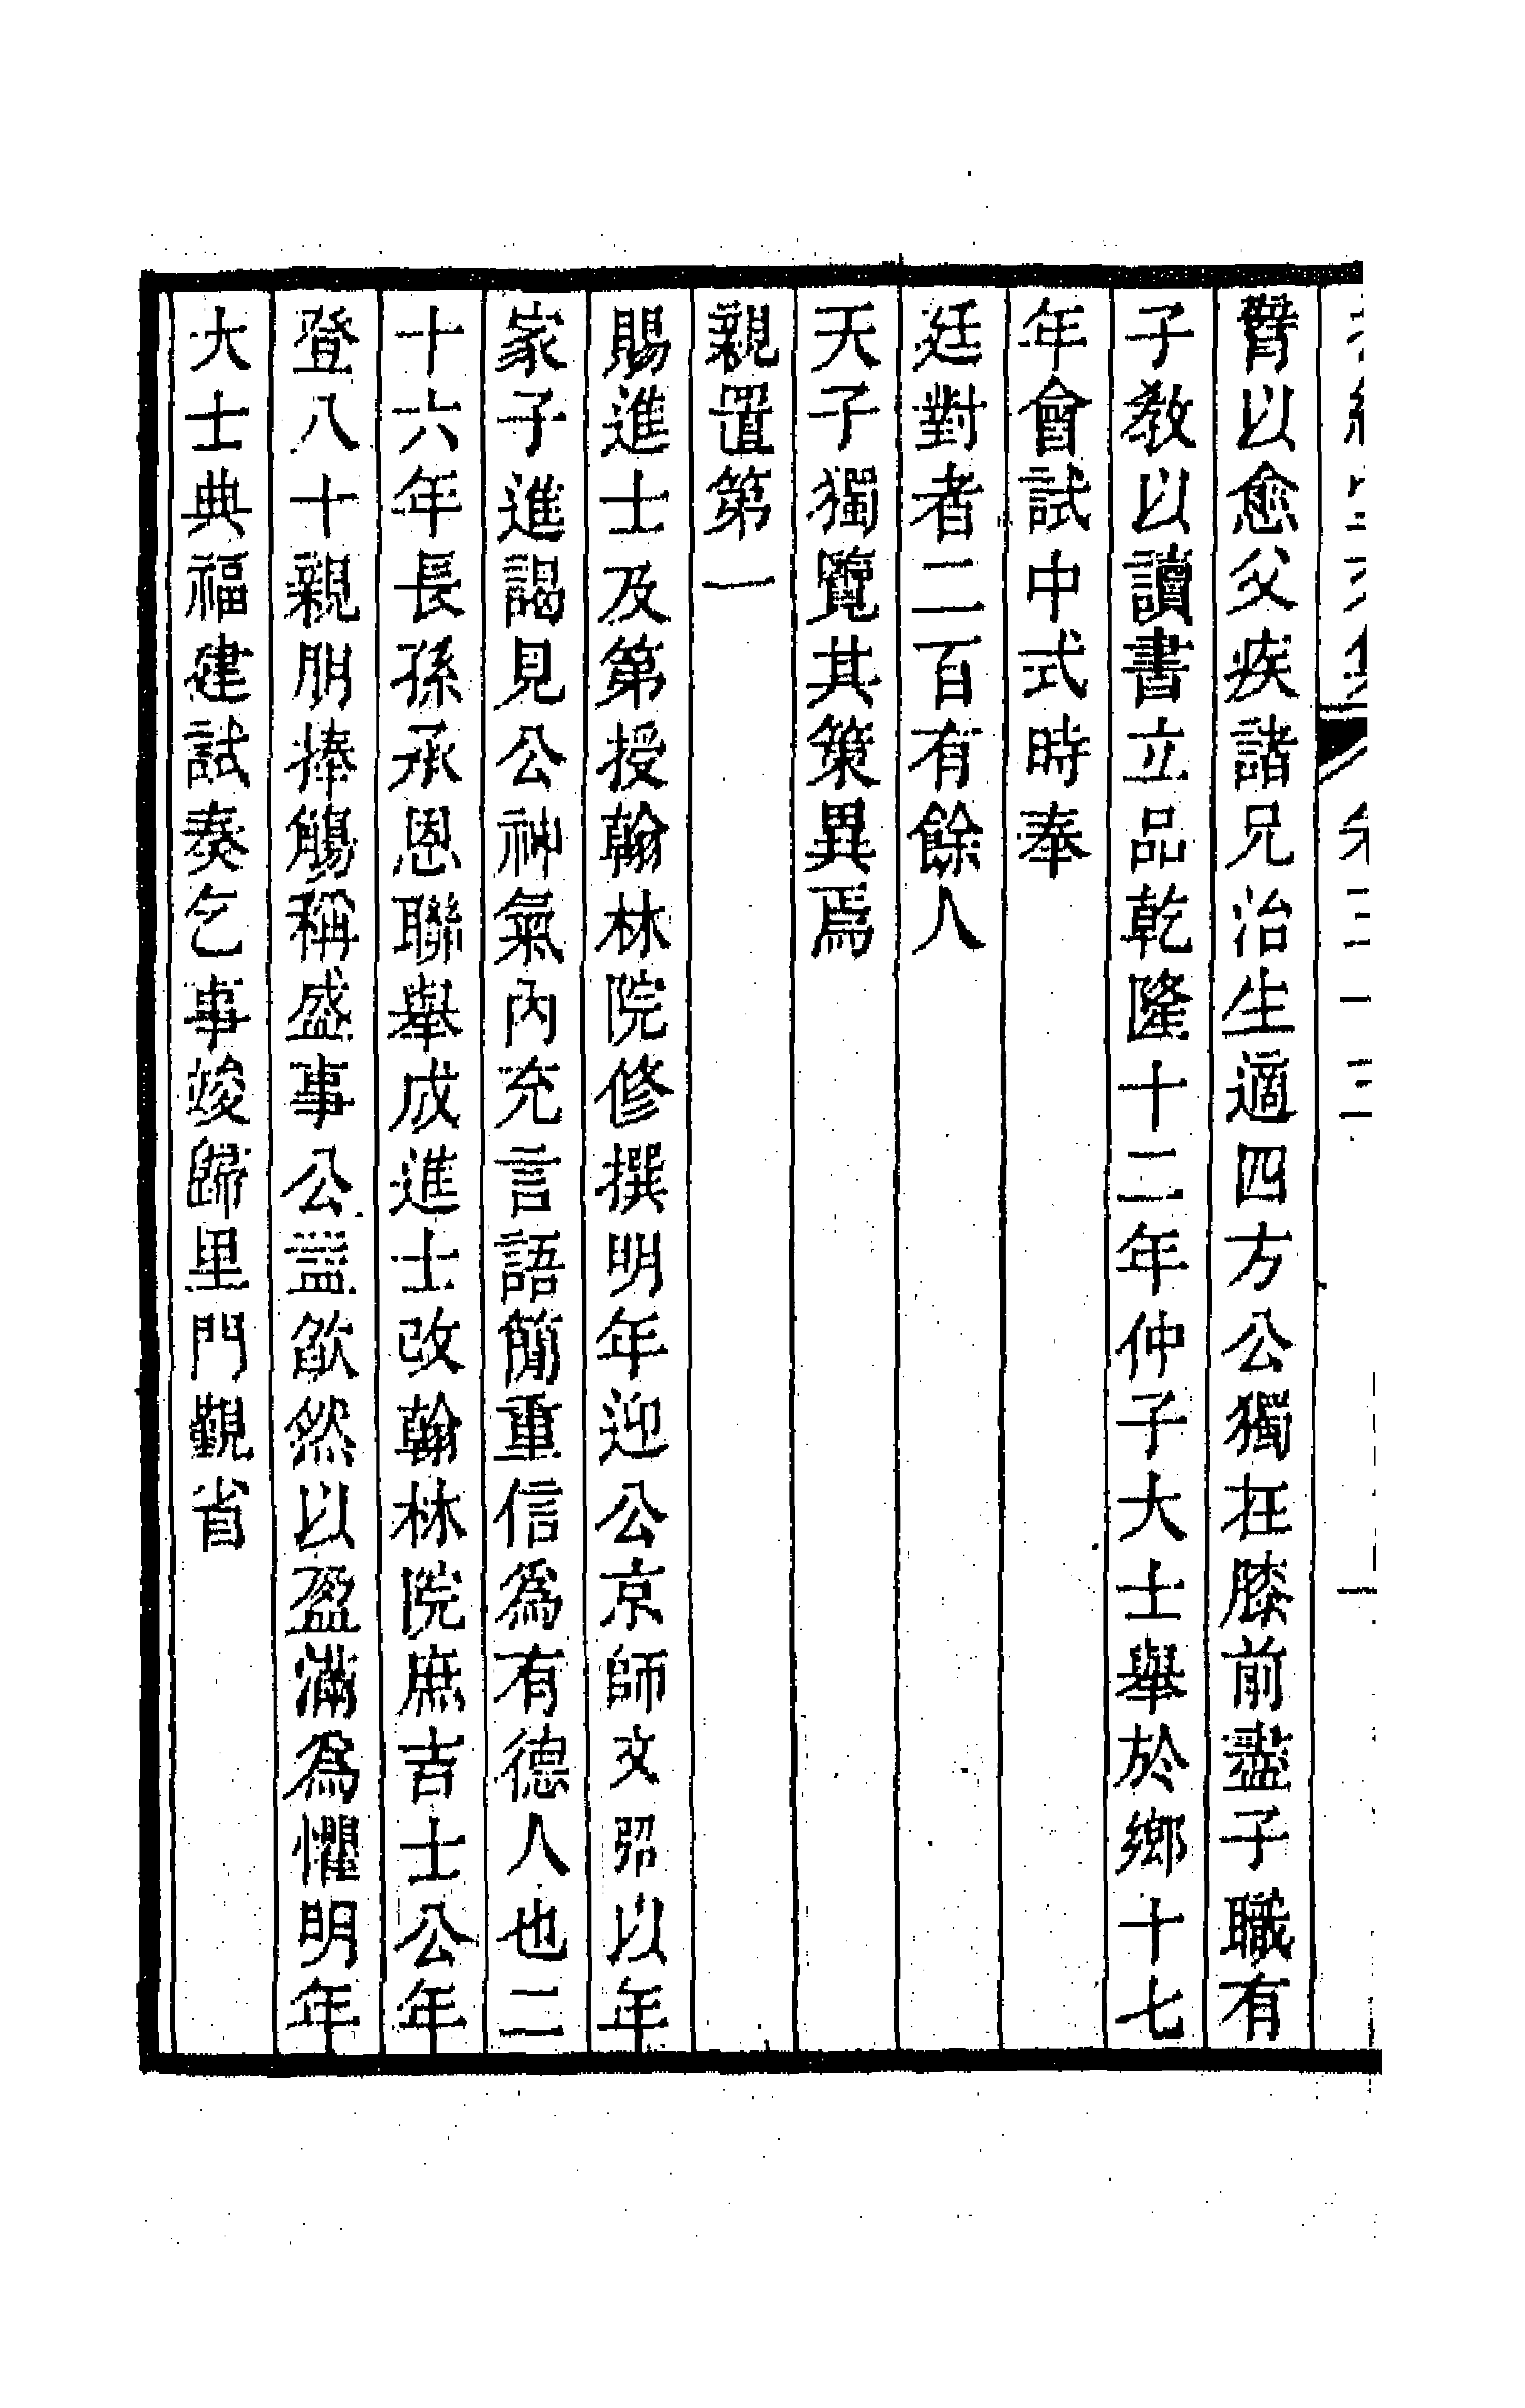 臂以愈父疾諸兄治生適四方公獨在膝前盡子職有
子教以讀書立品乾隆十二年仲子大士舉於鄉十七
年會試中式時奉
廷對者二百有餘人
天子獨覽其策異焉
親置第一
賜進士及第授翰林院修撰明年迎公京師文弨以年
家子進謁見公神氣內充言語簡重信爲有德人也二
十六年長孫承恩聯舉成進士改翰林院庶吉士公年
登八十親朋捧觴稱盛事公益欿然以盈滿爲懼明年
大士典福建試奏乞事竣歸里門覲省